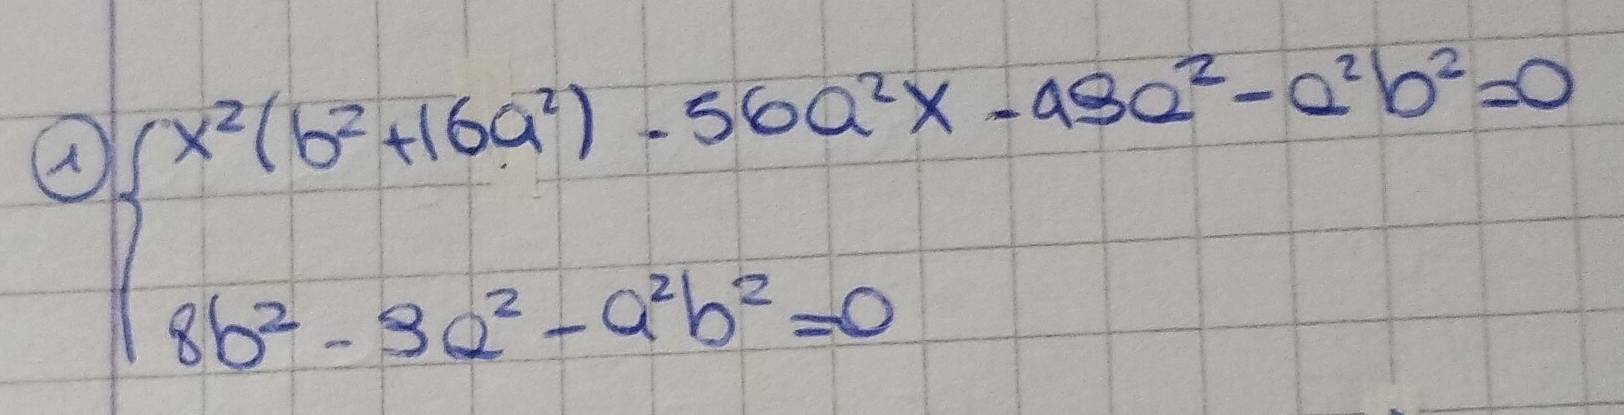 ① x²(b²+16a²) - 56a²x - 49a² - a²b² = 0
8b² - 9a² - a²b² = 0